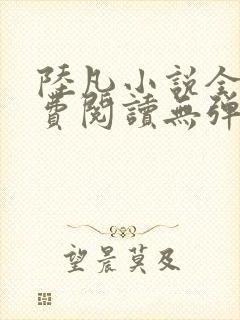 陸凡小說全
費閱讀無彈
望晨莫及